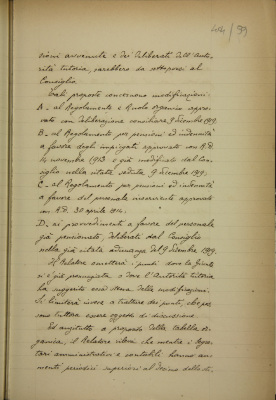 494/99
sioni avvenute e dei deliberati dell'Auto-
rità tutoria, sarebbero da sottoporre al
Consiglio.
Tali proposte concernono modificazioni:
A - al Regolamento e Ruolo organico appro-
vato con deliberazione consigliare 9 dicembre 1919.
B - al Regolamento per pensioni ed indennità
a favore degli impiegati approvato con R.D.
14 novembre 1913 e già modificato dal Con-
siglio nella citata seduta 9 dicembre 1919.
C - al Regolamento per pensioni ed indennità
a favore del personale inserviente approvato
con R.D. 30 aprile 1914.
D - ai provvedimenti a favore del personale
già pensionato, deliberati dal Consiglio
nella già citata adunanza del 9 dicembre 1919.
Il Relatore ometterà i punti dove la Giunta
si è già pronunziata e dove l'Autorità tutoria
ha suggerito essa stessa delle modificazioni.
Si limiterà invece a trattare dei punti, che pos-
sono tuttora essere oggetto di discussione.
Ed anzitutto a proposito della tabella or-
ganica, il Relatore rileva che mentre i Segre-
tari amministrativi e contabili hanno au-
menti periodici superiori al decimo dello sti-